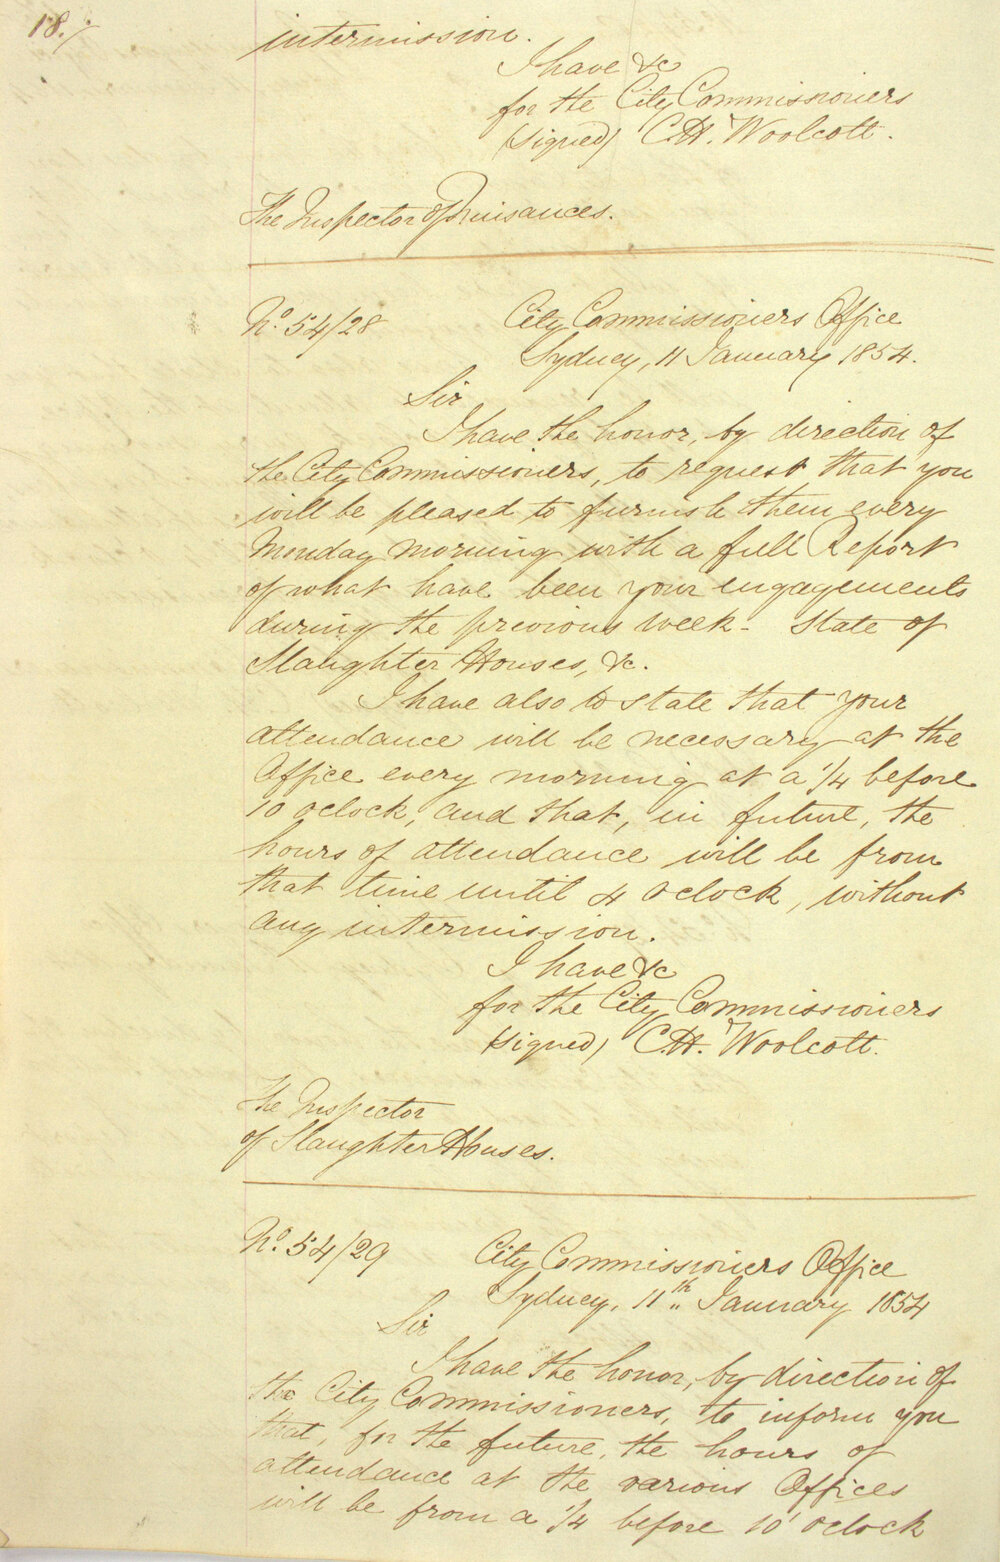 18./
intermission.
I have &c
for the City Commissioners
(signed) C.H. Woolcott.
The Inspector of Nuisances.
No. 54/28
City Commissioners Office
Sydney, 11 January 1854.
Sir
I have the honor, by direction of
the City Commissioners, to request that you
will be pleased to furnish them every
Monday morning with a full Report
of what have been your engagements
during the previous week - State of
Slaughter Houses, &c.
I have also to state that your
attendance will be necessary at the
Office every morning at a 1/4 before
10 oclock, and that, in future, the
hours of attendance will be from
that time until 4 oclock, without
any intermission.
I have &c
for the City Commissioners
(signed) C.H. Woolcott.
The Inspector
of Slaughter Houses.
No. 54/29
City Commissioners Office
Sydney, 11th January 1854
Sir
I have the honor, by direction of
the City Commissioners, to inform you
that, for the future, the hours of
attendance at the various Offices
will be from a 1/4 before 10 oclock